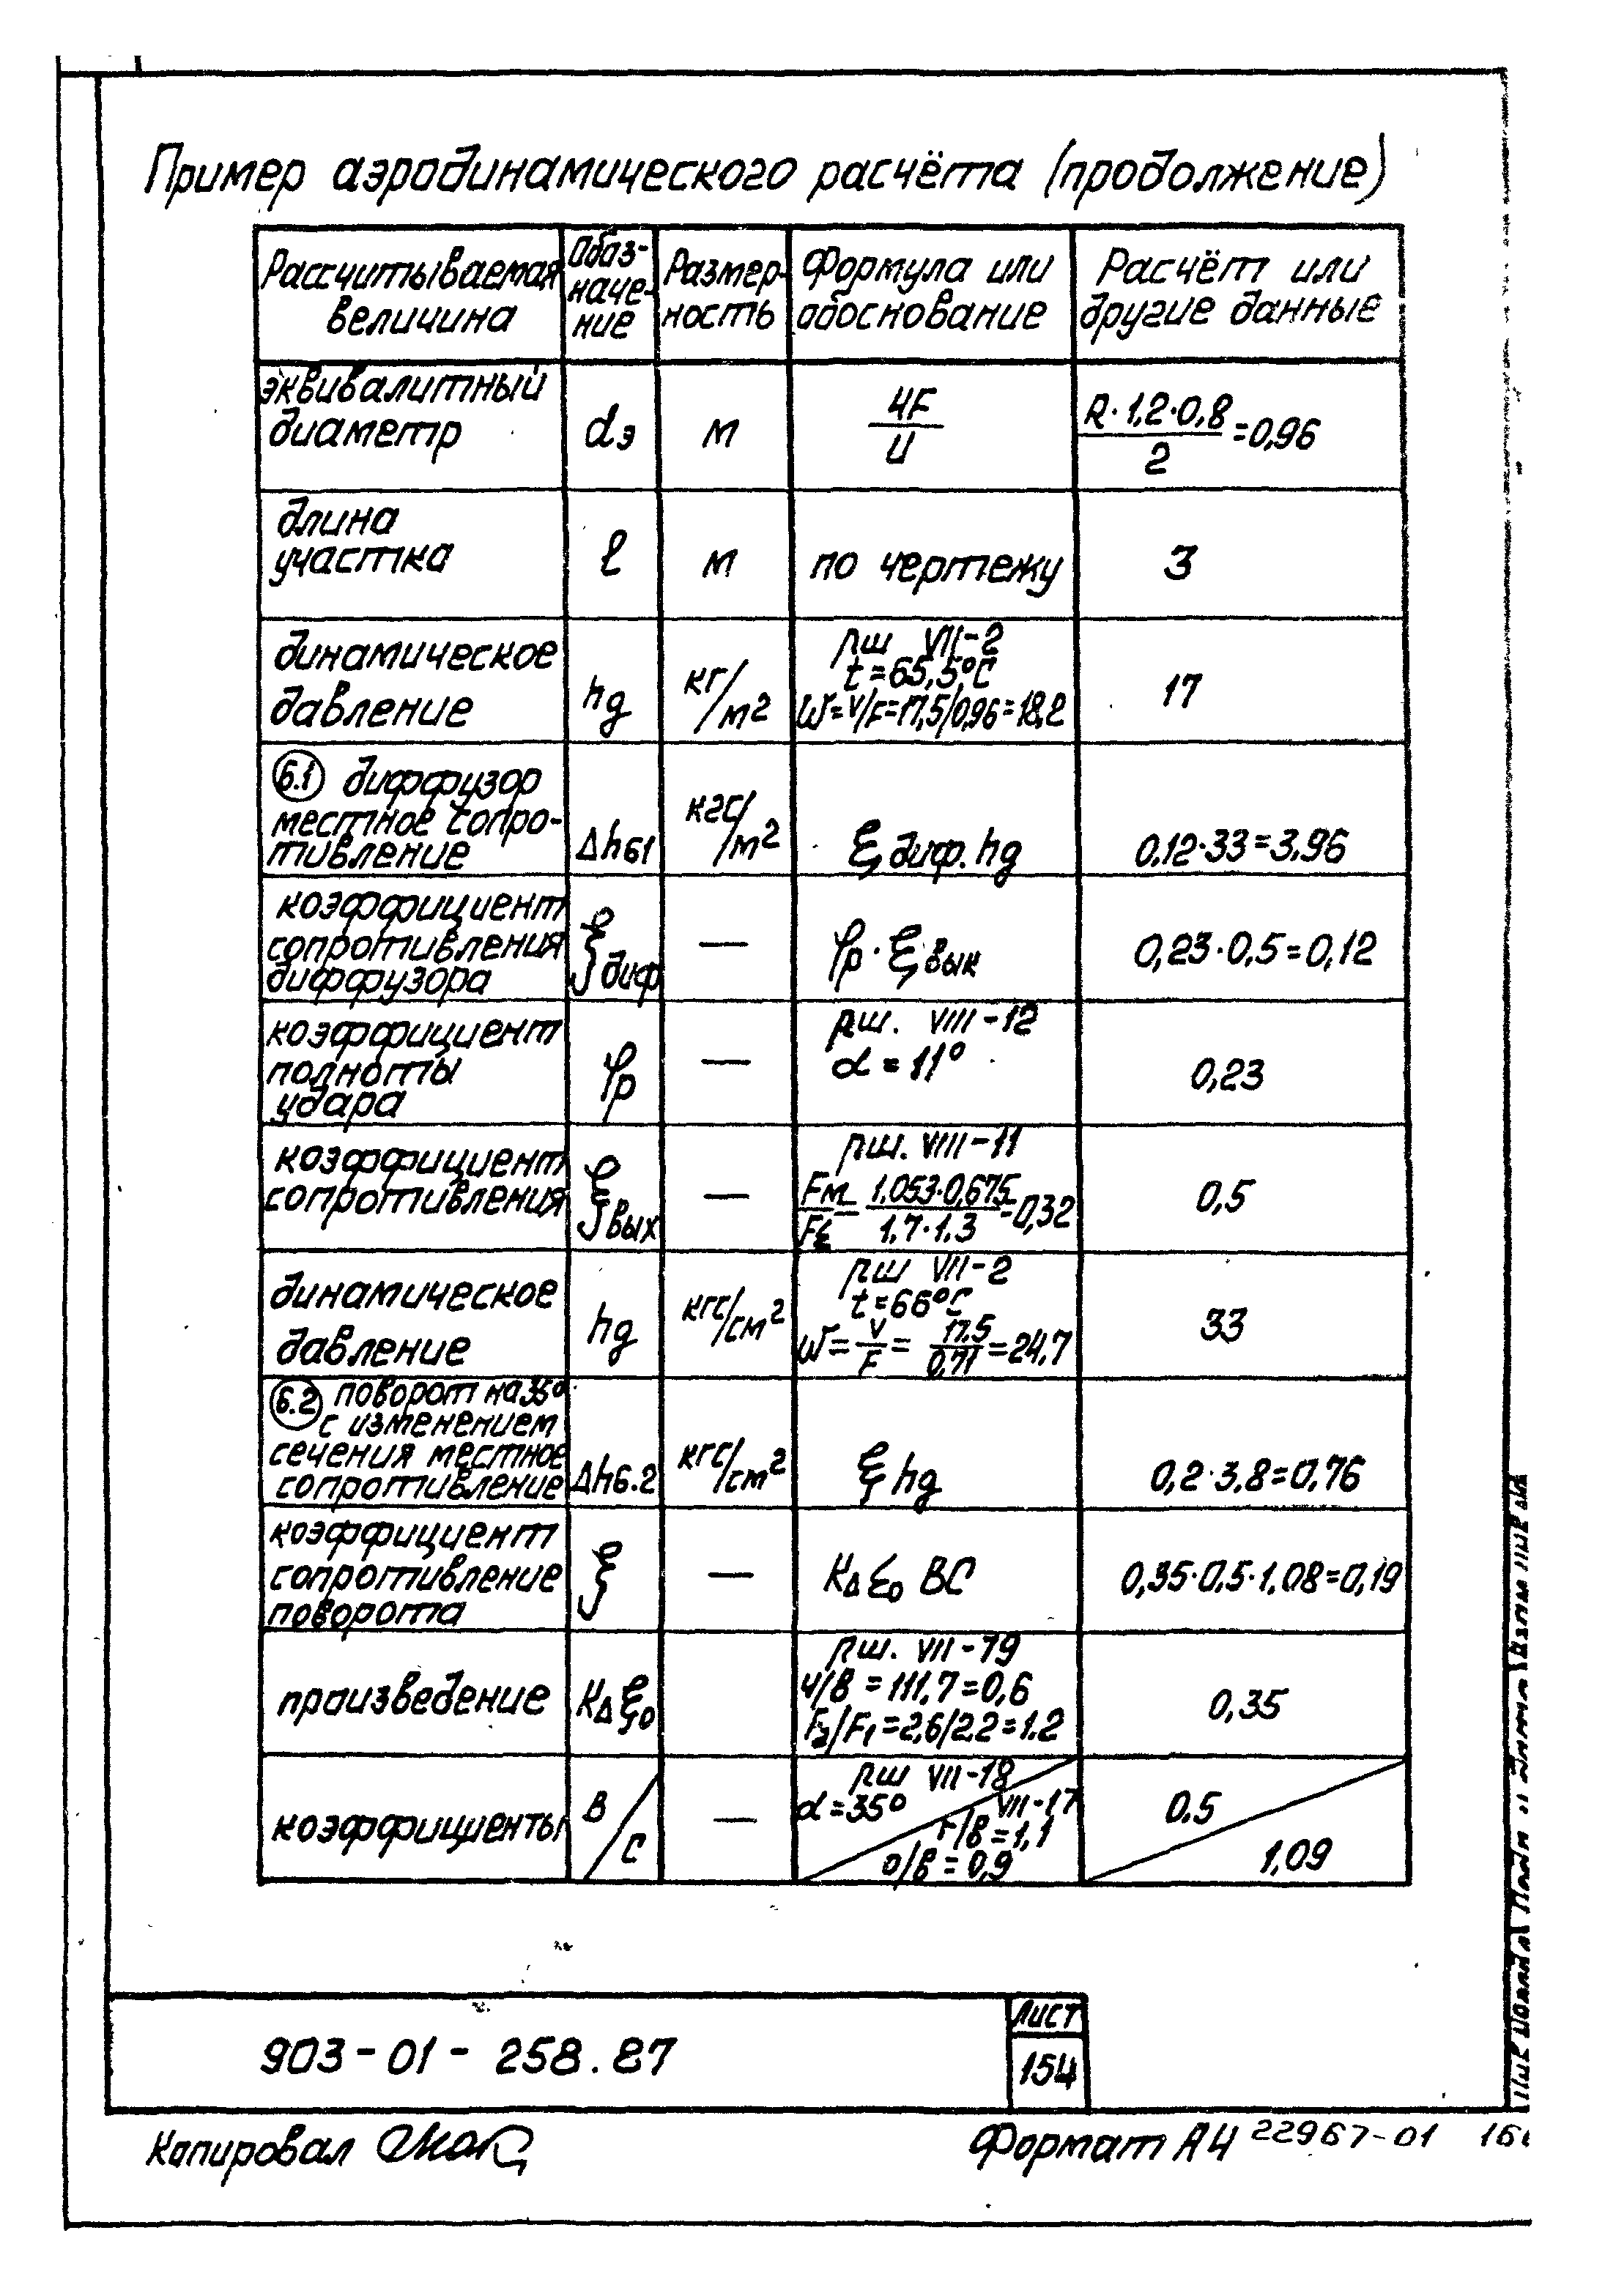 Пример аэродинамического расчёта (продолжение)
Рассчитываемая
величина
Обоз-
наче-
ние
Размер-
ность
Формула или
обоснование
Расчёт или
другие данные
эквивалитный
диаметр
dэ
м
4F
U
R·1,2·0,8
2
=0,96
длина
участка
ℓ
м
по чертежу
3
динамическое
давление
hg
кг/м2
рш VII-2
t=65,5°C
W=V/F=17,5/0,96=18,2
17
6.1 диффузор
местное сопро-
тивление
Δh61
кгс/м2
ξ диф. hg
0,12·33=3,96
коэффициент
сопротивления
диффузора
ξ диф
—
φр·ξ вык
0,23·0,5=0,12
коэффициент
полноты
удара
φр
—
рш. VIII-12
α=11°
0,23
коэффициент
сопротивления
ξ вых
—
рш. VIII-11
Fм = 1,053·0,675 =0,32
Fξ 1,7·1,3
0,5
динамическое
давление
hg
кгс/см2
рш VII-2
t=66°C
W= V = 17.5 =24,7
F 0,71
33
6.2 поворот на 35°
с изменением
сечения местное
сопротивление
Δh6.2
кгс/см2
ξ hg
0,2·3,8=0,76
коэффициент
сопротивление
поворота
ξ
—
KΔ ξ0 BC
0,35·0,5·1,08=0,19
произведение
KΔ ξ0
рш. VII-79
ч/в =111,7=0,6
F2/F1=2,6/2,2=1.2
0,35
коэффициенты
B/C
—
рш VII-18
α=35°
VII-17
г/в=1,1
о/в=0,9
0,5
1,09
903-01-258.87
Лист
154
Копировал
Формат А4 22967-01